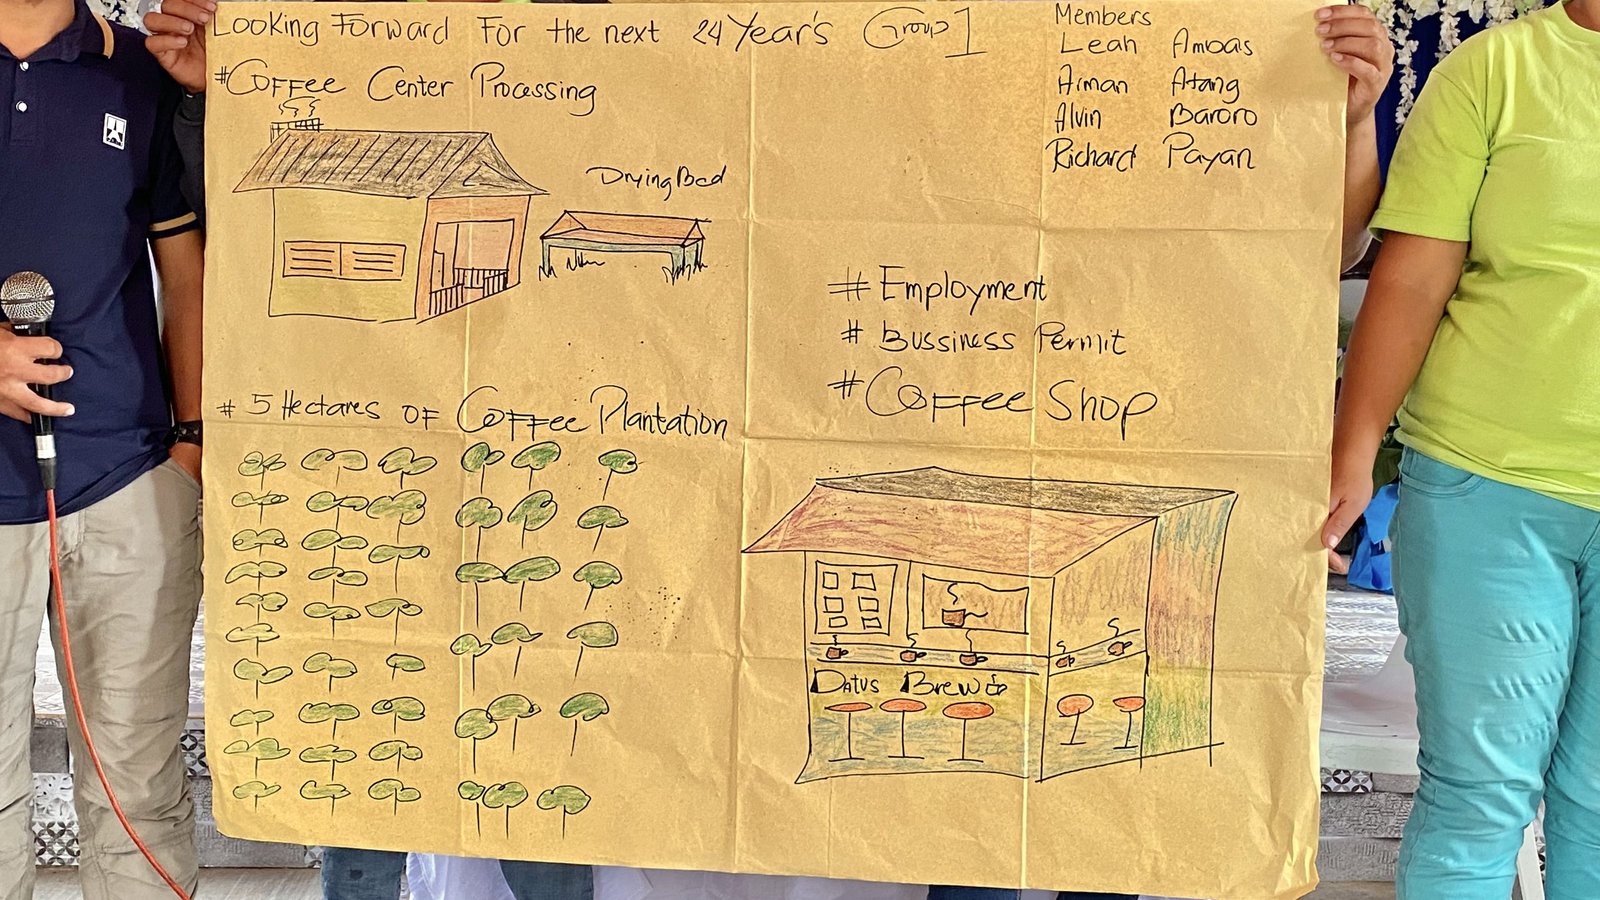 Looking Forward For the next 24 Year's Group 1
Members
Leah Ambas
Arman Atang
Alvin Baroro
Richard Payan
#Coffee Center Processing
Drying Bed
# Employment
# Bussiness Permit
# Coffee Shop
# 5 Hectares of Coffee Plantation
Datus Brew